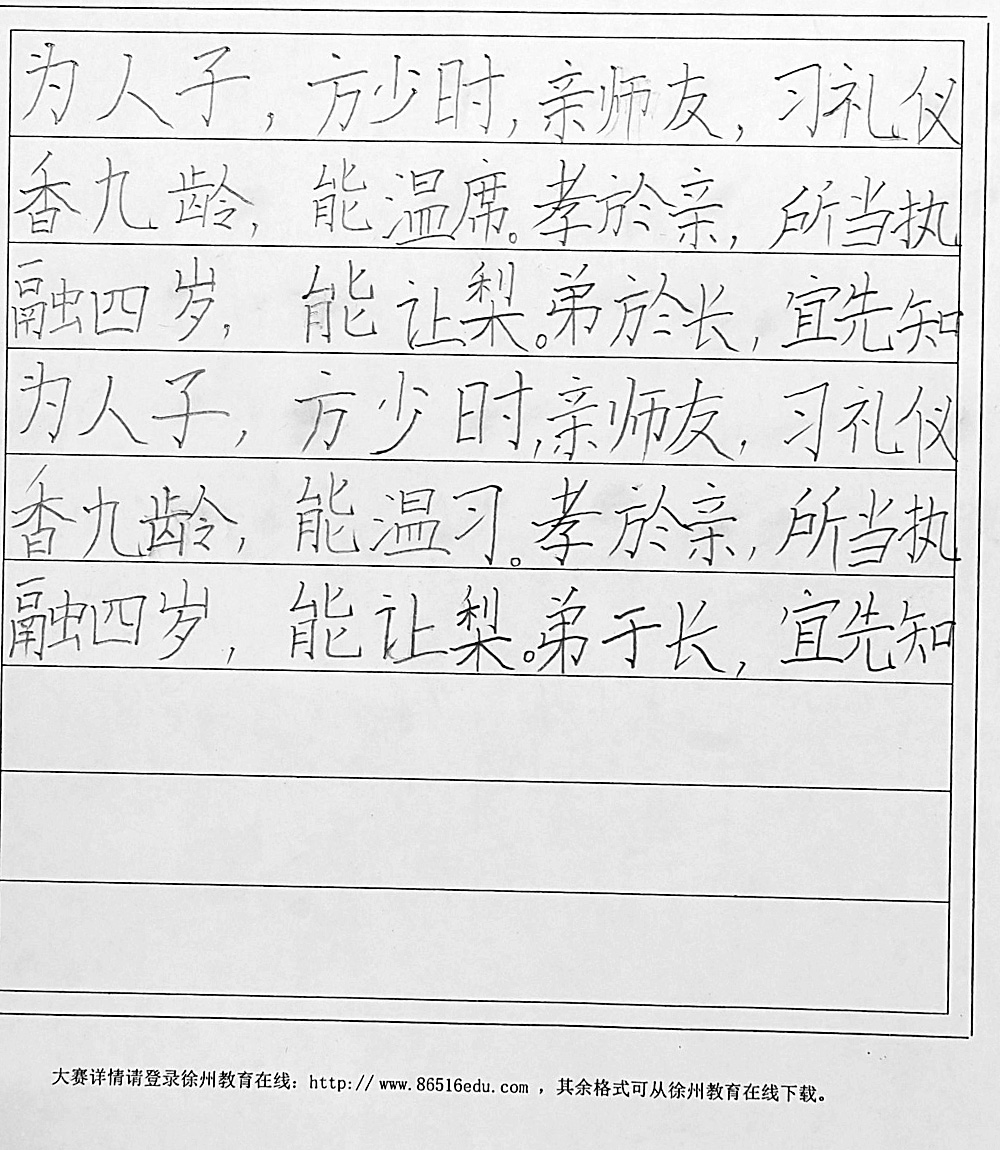 为人子，方少时，亲师友，习礼仪
香九龄，能温席。孝於亲，所当执
融四岁，能让梨。弟於长，宜先知
为人子，方少时，亲师友，习礼仪
香九龄，能温习。孝於亲，所当执
融四岁，能让梨。弟于长，宜先知
大赛详情请登录徐州教育在线：http://www.86516edu.com ，其余格式可从徐州教育在线下载。